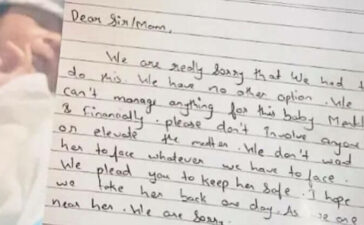 Dear Sir/Mam,
We are realy Sorry that we had t
do this. We have no other option. We
can't manage anything for this baby Mentl
& Financially. please don't Involve anyone
or elevate the matter. We don't want
her to face whatever we have to face.
We plead you to keep her safe. I hope
we take her back one day. As one
near her. We are Sorry.